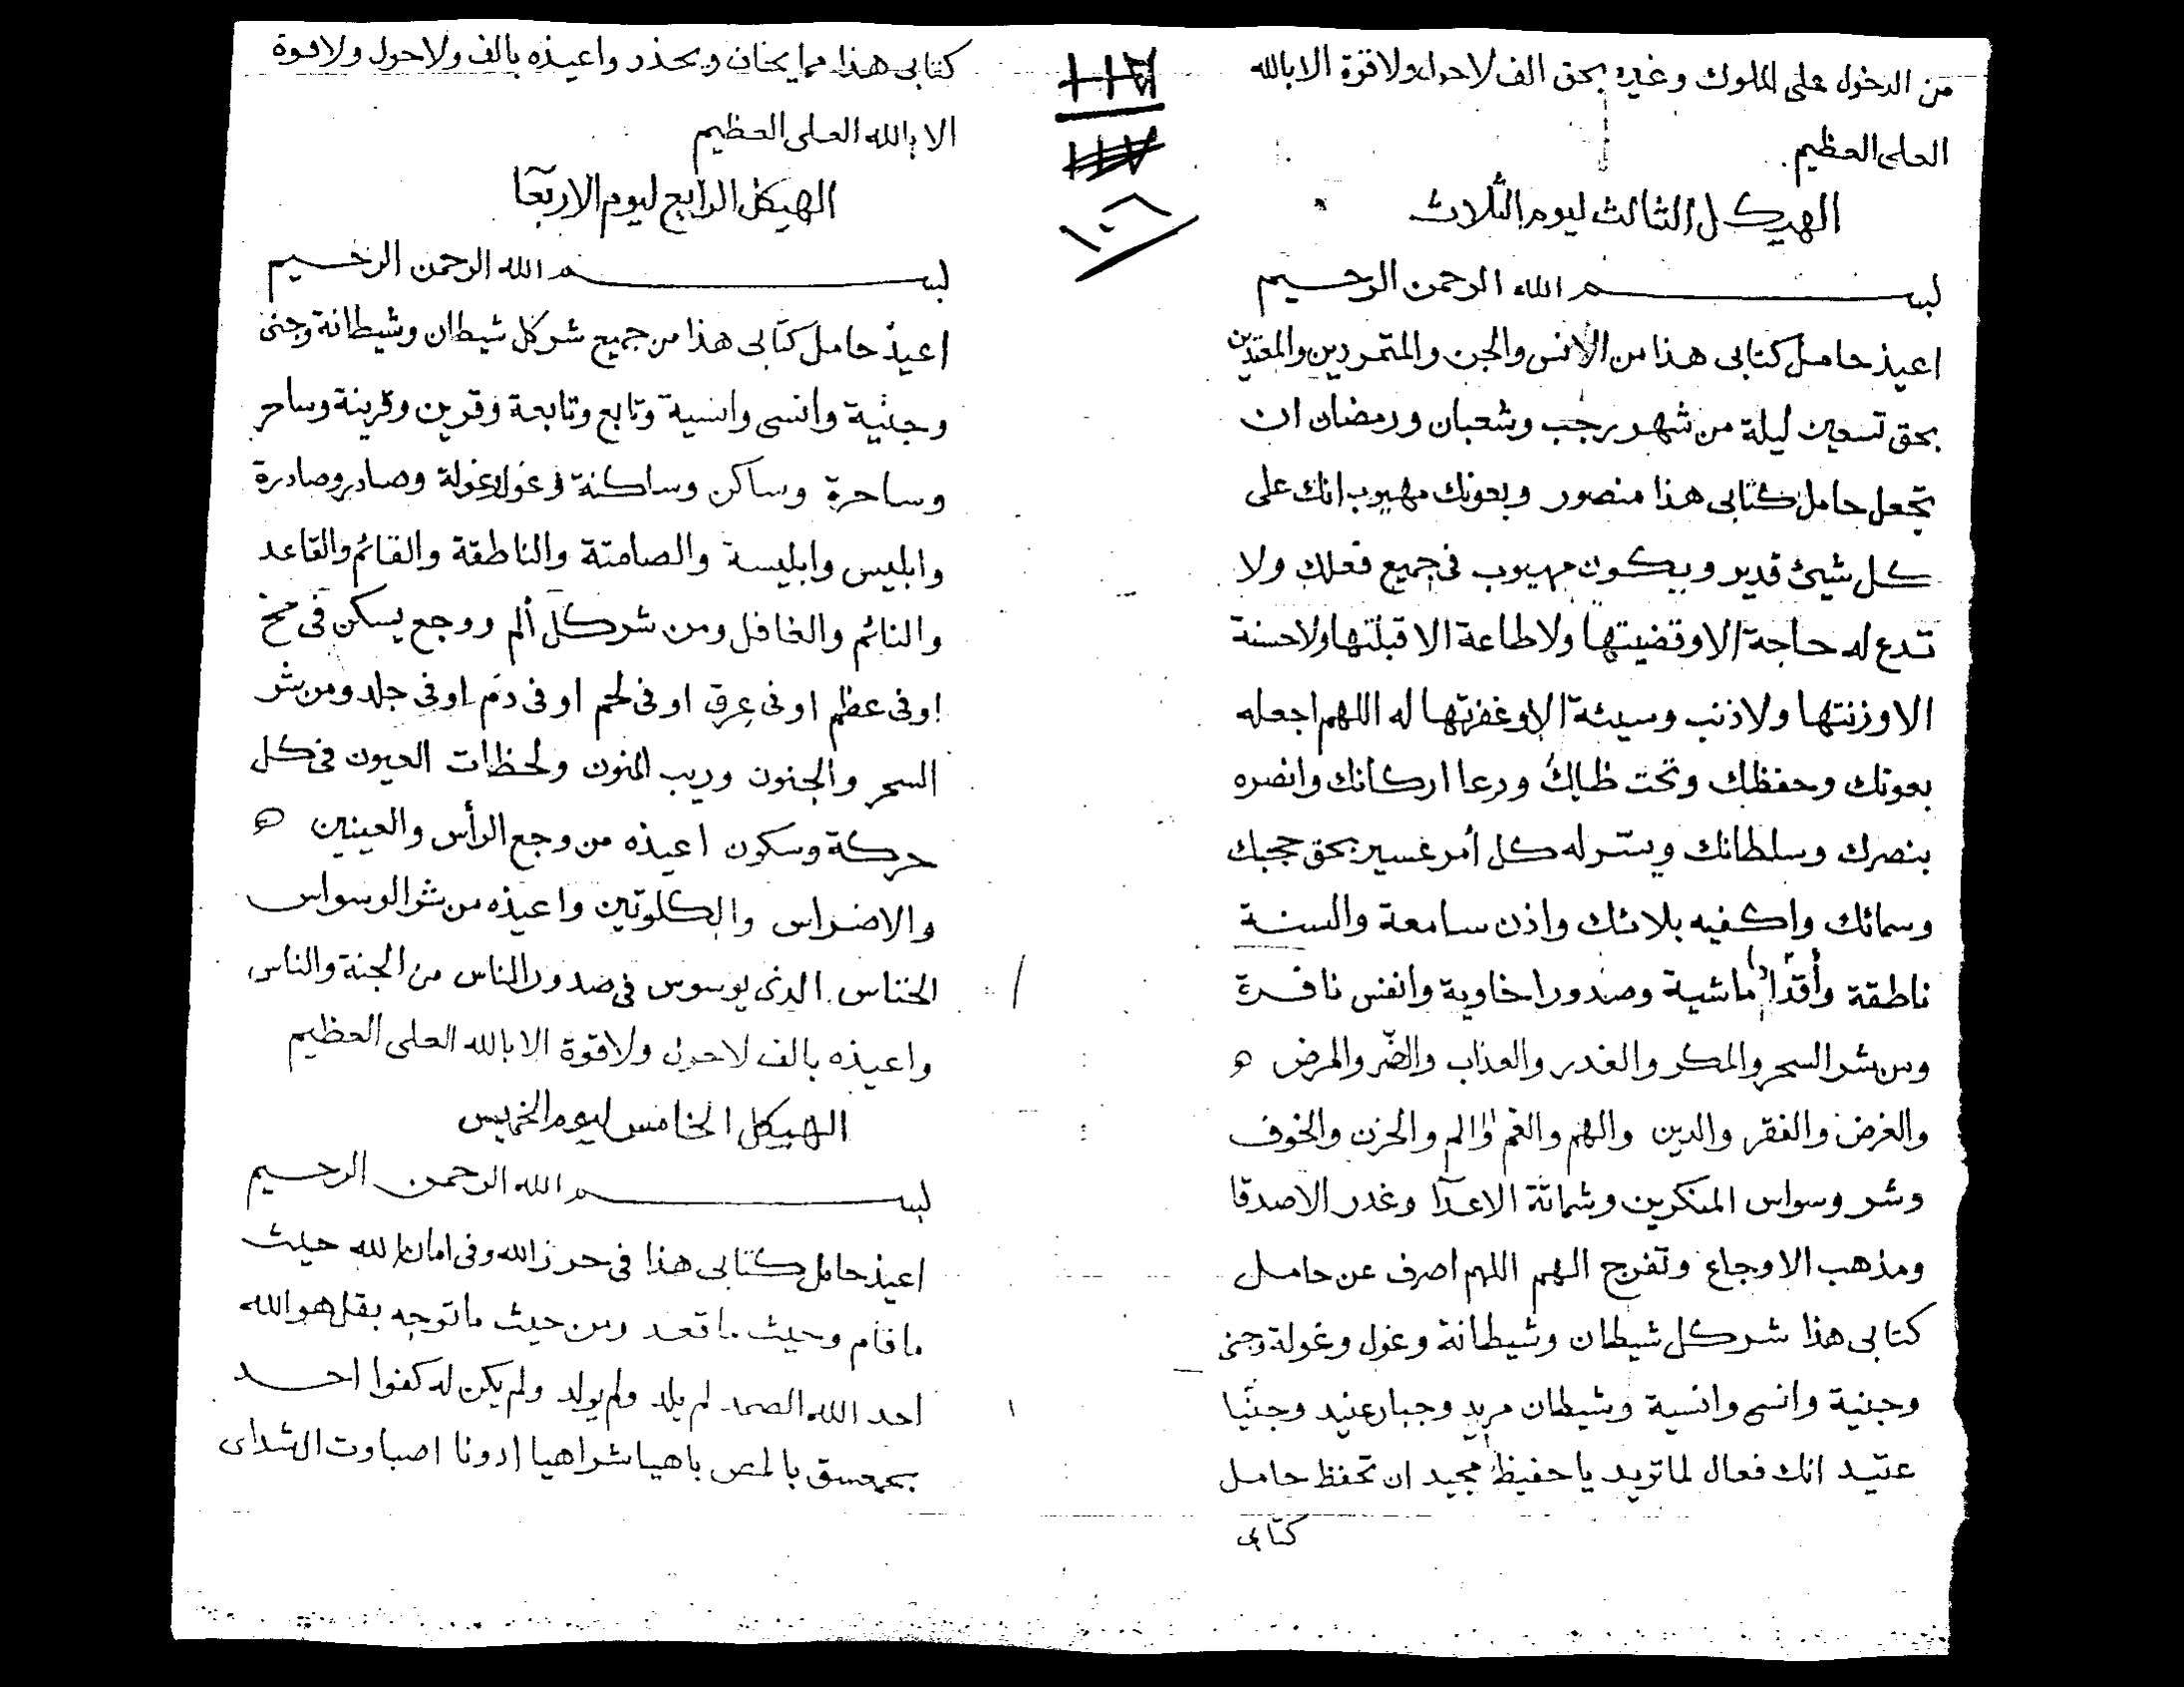 من الدخول على الملوك وغيره بحق الف لاحول ولاقوة الا بالله
العلى العظيم
الهيكل الثالث ليوم الثلاث
بسم الله الرحمن الرحيم
اعيذ حامل كتابى هذا من الانس والجن والمتمردين والمعتدين
بحق تسعين ليلة من شهر رجب وشعبان ورمضان ان
تجعل حامل كتابى هذا منصور وبعونك مهيوب انك على
كل شيئ قدير ويكون مهيوب فى جميع فعلك ولا
تدع له حاجة الا وقضيتها ولا طاعة الا قبلتها ولاحسنة
الا وزنتها ولا ذنب وسيئة الا وغفرتها له اللهم اجعله
بعونك وحفظك وتحت ظلك ودعا اركانك وانصره
بنصرك وسلطانك ويسر له كل أمر عسير بحق حجبك
وسمائك واكفيه بلائك واذن سامعة والسنة
ناطقة وأقداما ماشية وصدورا خاوية وانفس نافرة
ومن شر السحر والمكر والغدر والعذاب والضر والمرض ه
والغرض والفقر والدين والهم والغم والم والحزن والخوف
وشر وسواس المنكرين وشماتة الاعدآ وغدر الاصدقا
ومذهب الاوجاع وتفرج الهم اللهم اصرف عن حامل
كتابى هذا شر كل شيطان وشيطانة وغول وغولة وجنى
وجنية وانسى وانسية وشيطان مريد وجبار عنيد وجنيا
عتيد انك فعال لما تريد يا حفيظ مجيد ان تحفظ حامل
كتابى
كتابى هذا مما يخاف ويحذر واعيذه بالف ولاحول ولاقوة
الا بالله العلى العظيم
الهيكل الرابع ليوم الاربعآ
بسم الله الرحمن الرحيم
اعيذ حامل كتابى هذا من جميع شر كل شيطان وشيطانة وجنى
وجنية وانسى وانسية وتابع وتابعة وقرين وقرينة وساحر
وساحرة وساكن وساكنة وغول وغولة وصادر وصادرة
وابليس وابليسة والصامتة والناطقة والقائم والقاعد
والنائم والغافل ومن شر كل ألم ووجع يسكن فى مخ
اوفى عظم اوفى عرق اوفى لحم اوفى دم اوفى جلد ومن شر
السحر والجنون وريب المنون ولحظات العيون فى كل
حركة وسكون اعيذه من وجع الرأس والعينين ه
والاضراس والكلوتين واعيذه من شر الوسواس
الخناس الذى يوسوس فى صدور الناس من الجنة والناس
واعيذه بالف لاحول ولاقوة الا بالله العلى العظيم
الهيكل الخامس ليوم الخميس
بسم الله الرحمن الرحيم
اعيذ حامل كتابى هذا فى حرز الله وفى امان الله حيث
ما قام وحيث ما قعد ومن حيث ما توجه بقل هو الله
احد الله الصمد لم يلد ولم يولد ولم يكن له كفوا احد
بحمعسق بالمص باهيا شراهيا ادونا اصباوت الشداى